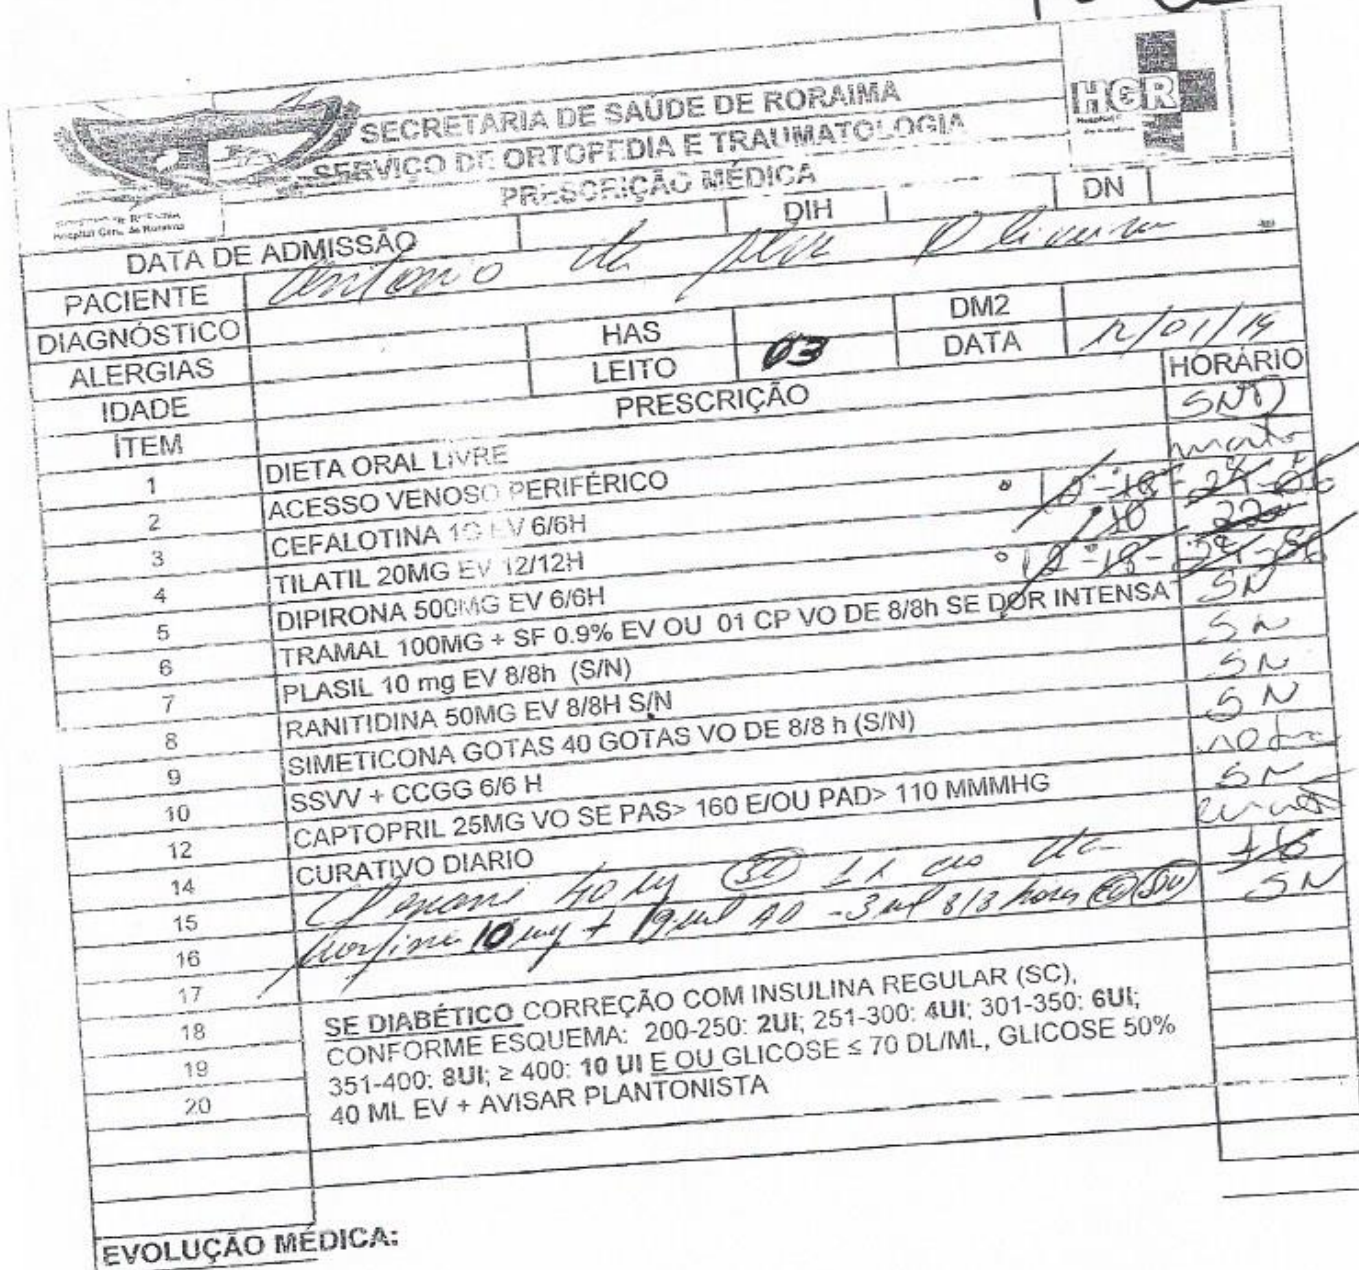 SECRETARIA DE SAÚDE DE RORAIMA
HGR
SERVIÇO DE ORTOPEDIA E TRAUMATOLOGIA
PRESCRIÇÃO MÉDICA
Hospital Geral de Roraima
DATA DE ADMISSÃO DIH DN
PACIENTE Antonio da Silva Oliveira
DIAGNÓSTICO
ALERGIAS HAS DM2
IDADE LEITO 03 DATA 12/01/19
ÍTEM PRESCRIÇÃO HORÁRIO
1 DIETA ORAL LIVRE SND
2 ACESSO VENOSO PERIFÉRICO
3 CEFALOTINA 1G EV 6/6H 12-18-24-06
4 TILATIL 20MG EV 12/12H 10 22
5 DIPIRONA 500MG EV 6/6H 12-18-24-06
6 TRAMAL 100MG + SF 0.9% EV OU 01 CP VO DE 8/8h SE DOR INTENSA SN
7 PLASIL 10 mg EV 8/8h (S/N) SN
8 RANITIDINA 50MG EV 8/8H S/N SN
9 SIMETICONA GOTAS 40 GOTAS VO DE 8/8 h (S/N) SN
10 SSVV + CCGG 6/6 H
12 CAPTOPRIL 25MG VO SE PAS> 160 E/OU PAD> 110 MMMHG SN
14 CURATIVO DIARIO
15 40 mg SC 1x ao dia 16
16 Morfina 10 mg + 19 ml AD - 3 ml 8/8 horas SN
17
18 SE DIABÉTICO CORREÇÃO COM INSULINA REGULAR (SC),
19 CONFORME ESQUEMA: 200-250: 2UI; 251-300: 4UI; 301-350: 6UI;
20 351-400: 8UI; ≥ 400: 10 UI E OU GLICOSE ≤ 70 DL/ML, GLICOSE 50%
40 ML EV + AVISAR PLANTONISTA
EVOLUÇÃO MÉDICA: